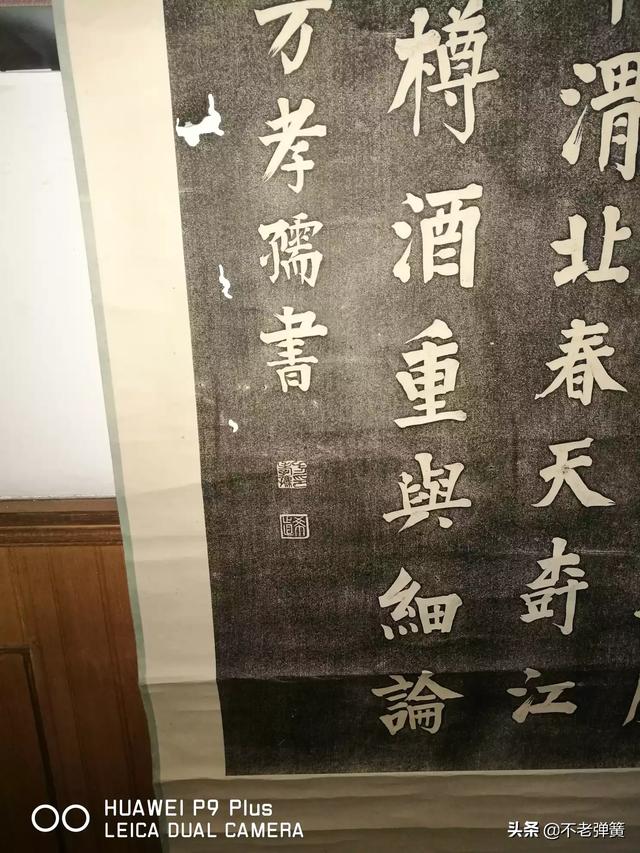 渭北春天江
樽酒重與細論
方孝孺書
HUAWEI P9 Plus
LEICA DUAL CAMERA
头条 @不老弹簧